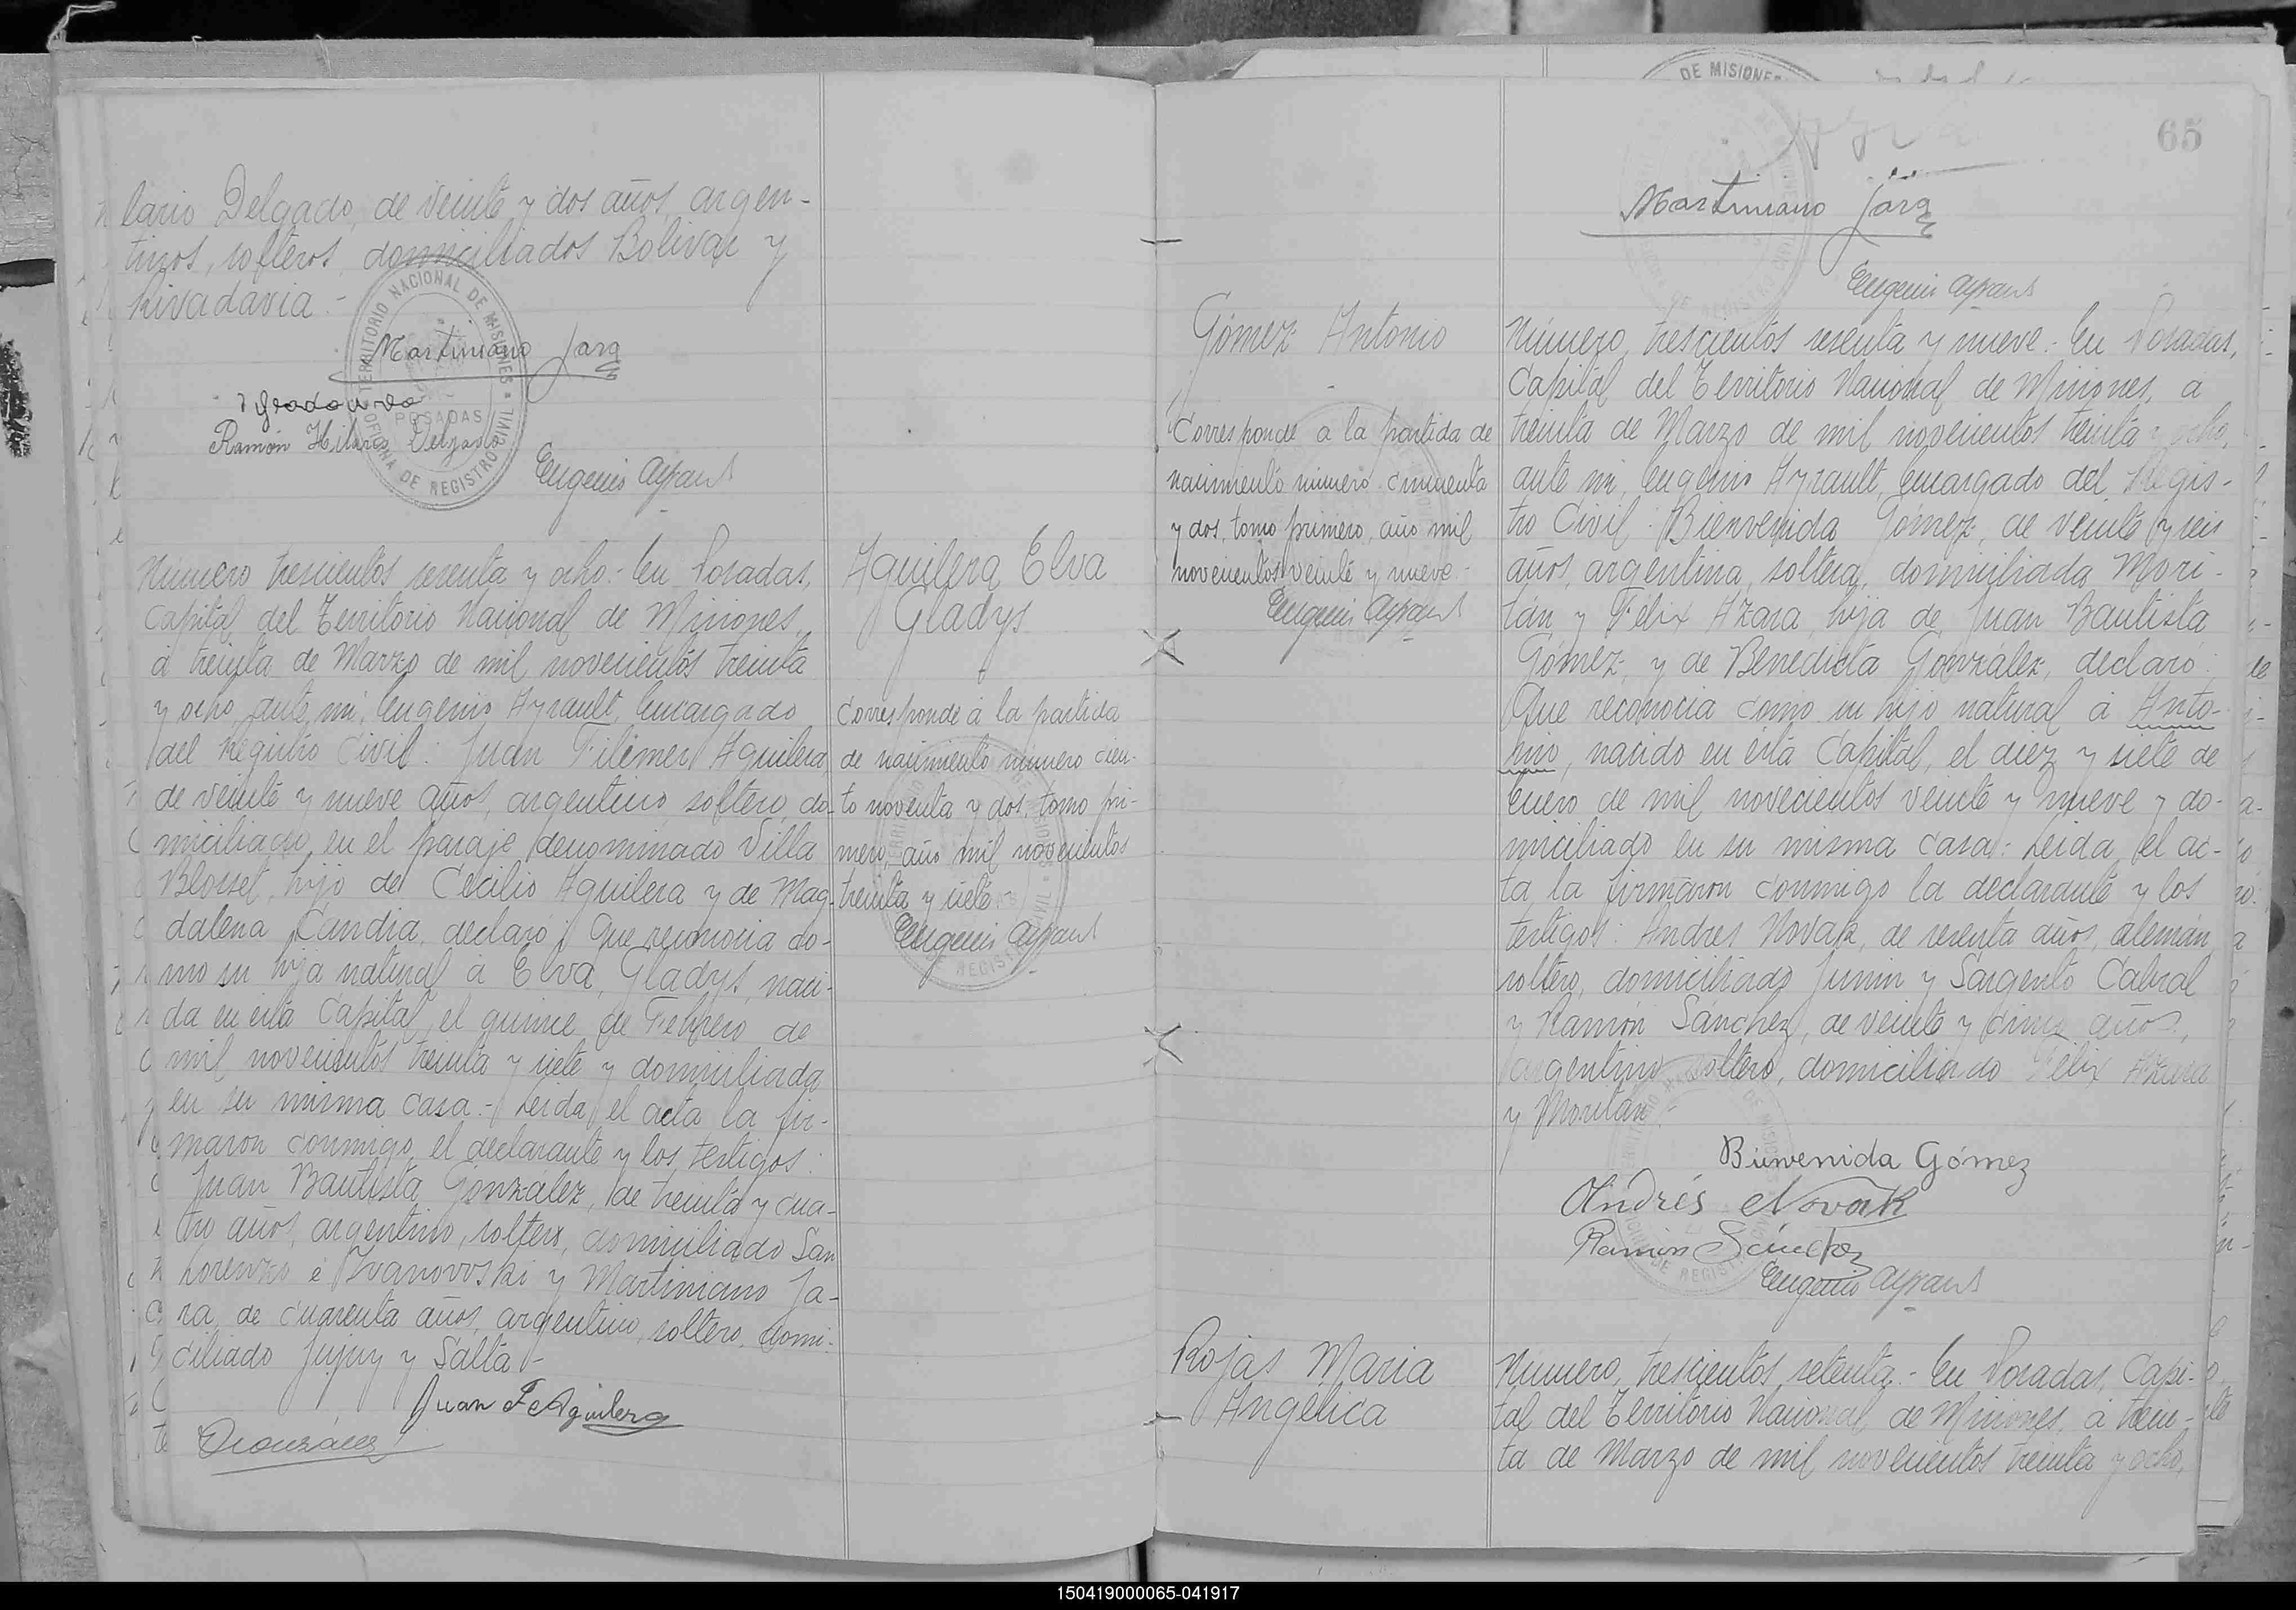 lario Delgado, de veinte y dos años, argen-
tinos, solteros, domiciliados Bolivar y
Rivadavia.-
TERRITORIO NACIONAL DE MISIONES
POSADAS
OFICINA DE REGISTRO CIVIL
Martiniano Jara
Ramón Hilario Delgado
Eugenio Ayrault
Número trescientos sesenta y ocho.- En Posadas,
Capital del Territorio Nacional de Misiones,
á treinta de Marzo de mil novecientos treinta
y ocho, ante mi, Eugenio Ayrault, Encargado
del Registro Civil: Juan Filemer Aguilera,
de veinte y nueve años, argentino, soltero, do-
miciliado en el paraje denominado Villa
Blosset, hijo de Cecilio Aguilera y de Mag-
dalena Candia, declaró: Que reconocia co-
mo su hija natural á Elva Gladys, naci-
da en esta Capital, el quince de Febrero de
mil novecientos treinta y siete y domiciliada
en su misma casa.- Leida el acta la fir-
maron conmigo el declarante y los testigos:
Juan Bautista González, de treinta y cua-
tro años, argentino, soltero, domiciliado San
Lorenzo é Ivanovoski y Martiniano Ja-
ra, de cuarenta años, argentino, soltero, domi-
ciliado Jujuy y Salta.-
Juan F Aguilera
González
Aguilera Elva
Gladys
Corresponde á la partida
de nacimiento número cien-
to noventa y dos, tomo pri-
mero, año mil novecientos
treinta y siete.
Eugenio Ayrault
DE MISIONES
65
Martiniano Jara
Eugenio Ayrault
Gómez Antonio
Corresponde a la partida de
nacimiento número cincuenta
y dos, tomo primero, año mil
novecientos veinte y nueve.-
Eugenio Ayrault
Número trescientos sesenta y nueve.- En Posadas,
Capital del Territorio Nacional de Misiones, a
treinta de Marzo de mil novecientos treinta y ocho,
ante mi, Eugenio Ayrault, Encargado del Regis-
tro Civil: Bienvenida Gómez, de veinte y seis
años, argentina, soltera, domiciliada Mori-
tán y Félix Azara, hija de Juan Bautista
Gómez y de Benedicta González, declaró:
Que reconocia como su hijo natural á Anto-
nio, nacido en esta Capital, el diez y siete de
Enero de mil novecientos veinte y nueve y do-
miciliado en su misma casa.- Leida el ac-
ta la firmaron conmigo la declarante y los
testigos: Andres Novak, de sesenta años, alemán,
soltero, domiciliado Junin y Sargento Cabral
y Ramón Sánchez, de veinte y cinco años,
argentino, soltero, domiciliado Félix Azara
y Moritán.-
Bienvenida Gómez
Andrés Novak
Ramón Sánchez
Eugenio Ayrault
Rojas Maria
Angélica
Número trescientos setenta.- En Posadas, Capi-
tal del Territorio Nacional de Misiones, á trein-
ta de Marzo de mil novecientos treinta y ocho,
150419000065-041917